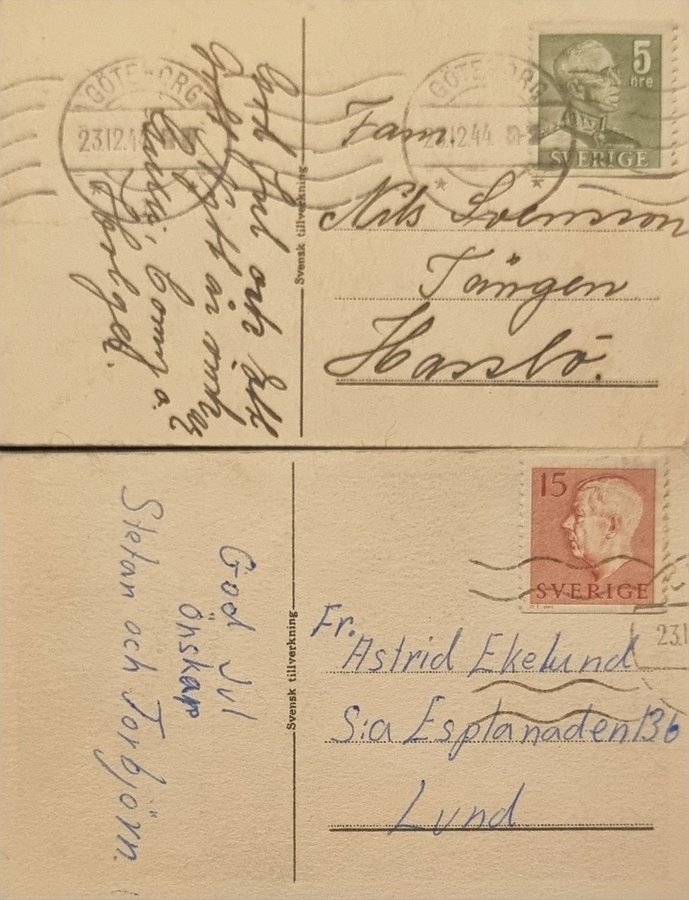 GÖTEBORG
23.12.44
GÖTEBORG
23.12.44
5
öre
SVERIGE
God Jul och Gott
Gott Nytt år önskar
Conny o.
Torbjörn.
Svensk tillverkning
Fam.
Nils Svensson
Tången
Hasslö.
15
SVERIGE
23.1
God Jul
önskar
Stefan och Torbjörn.
Svensk tillverkning
Fr.
Astrid Ekelund
S:a Esplanaden 13b
Lund